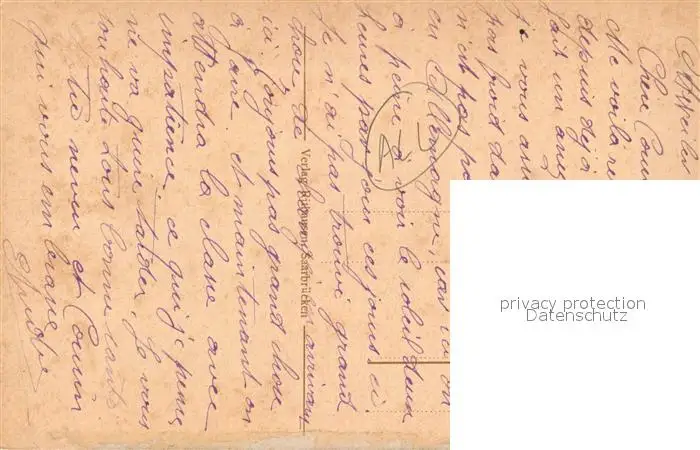 Chere Cou
Me voilà re
depuis dejà
fait un
si vous
pas froid da
n'est pas
en Allemagne, car ici on
a peine à voir le soleil deux
heures par jour ces jours ci.
Je n'ai pas trouvé grand
chose de arrivant
ici, toujours pas grand chose
à faire et maintenant on
attendra la classe avec
impatience, ce qui je pense
ne va guère tarder. Je vous
souhaite tous bonne santé
Ton neveu et Cousin
qui vous embrasse
Verlag Saarbrücken
privacy protection
Datenschutz